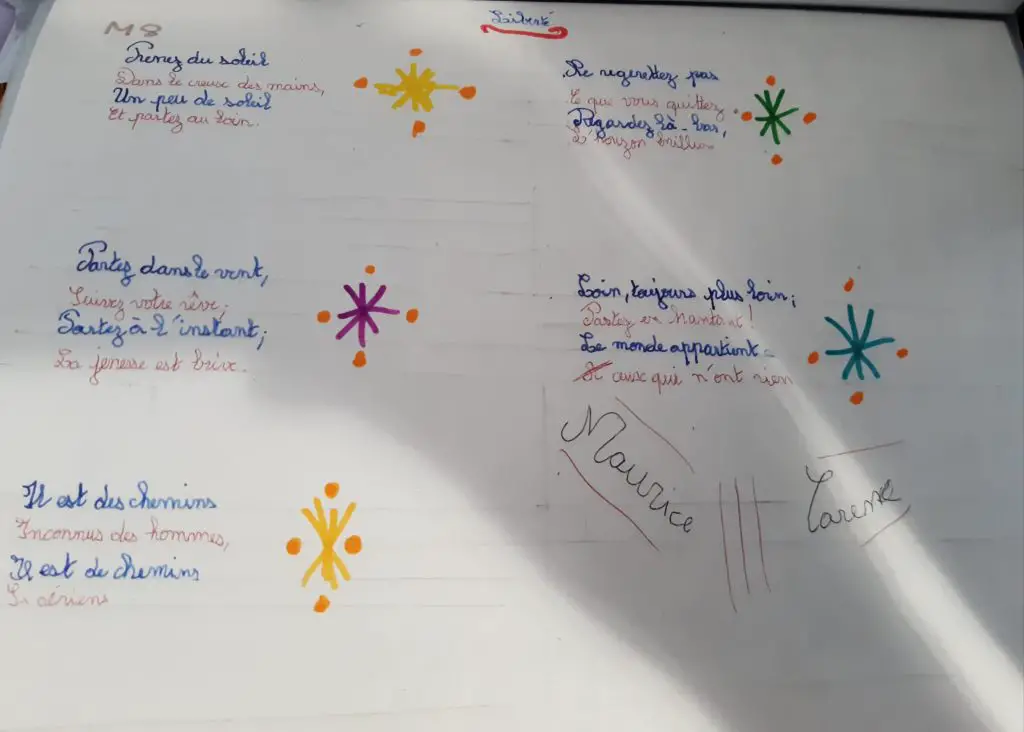 M8
Liberté
Prenez du soleil
Dans le creuse des mains,
Un peu de soleil
Et partez au loin.
Partez dans le vent,
Suivez votre rêve;
Partez à l'instant;
La jenesse est brève.
Il est des chemins
Inconnus des hommes,
Il est de chemins
Si aériens
Ne regrettez pas
Ce que vous quittez.
Regardez là-bas,
L'horizon briller.
Loin, toujours plus loin;
Partez en chantant!
Le monde appartient
À ceux qui n'ont rien
Maurice
Careme